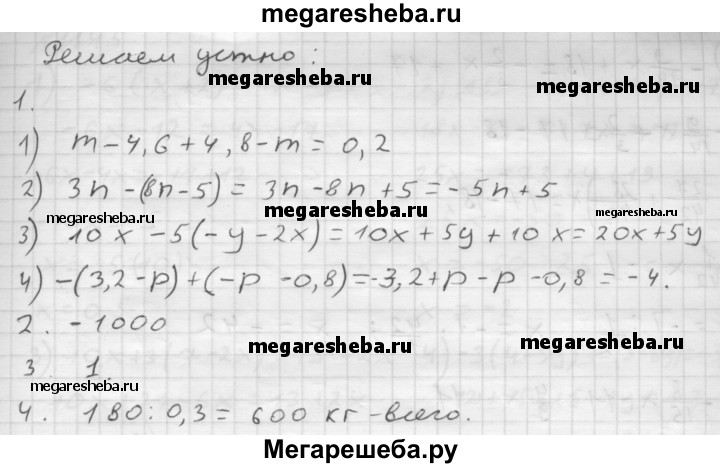 megaresheba.ru
Решаем устно:
megaresheba.ru
1.
1) m-4,6+4,8-m=0,2
megaresheba.ru
2) 3n-(8n-5)=3n-8n+5=-5n+5
megaresheba.ru megaresheba.ru megaresheba.ru
3) 10x-5(-y-2x)=10x+5y+10x=20x+5y
4) -(3,2-p)+(-p-0,8)=-3,2+p-p-0,8=-4.
2. -1000
megaresheba.ru
3. 1.
megaresheba.ru
4. 180:0,3=600 кг-всего.
Мегарешеба.ру